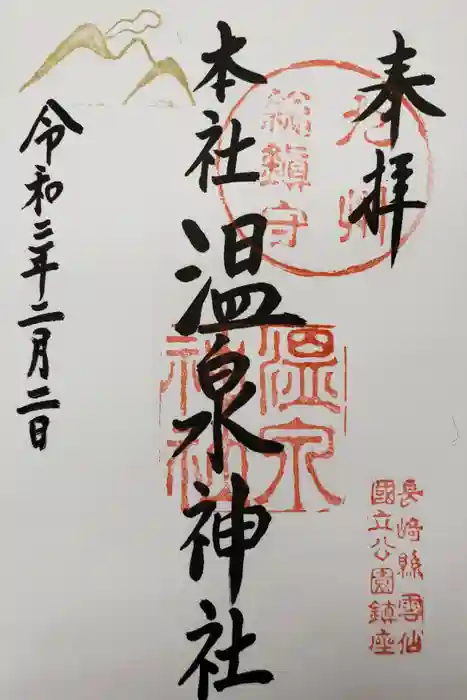 奉拝
九州
総鎮守
本社 温泉神社
温泉
神社
長崎縣雲仙
國立公園鎮座
令和三年二月二日